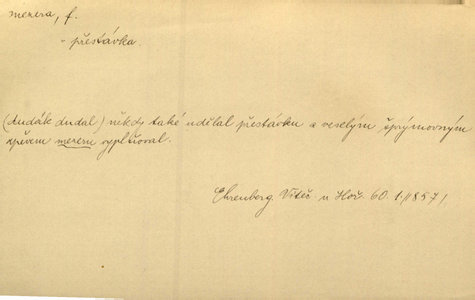 mezera, f.
- přestávka.
(dudák dudal) někdy také udělal přestávku a veselým šprýmovným
zpěvem mezeru vyplňoval.
Ehrenberg. Vítěz u Hoř. 60. 1. (1857)